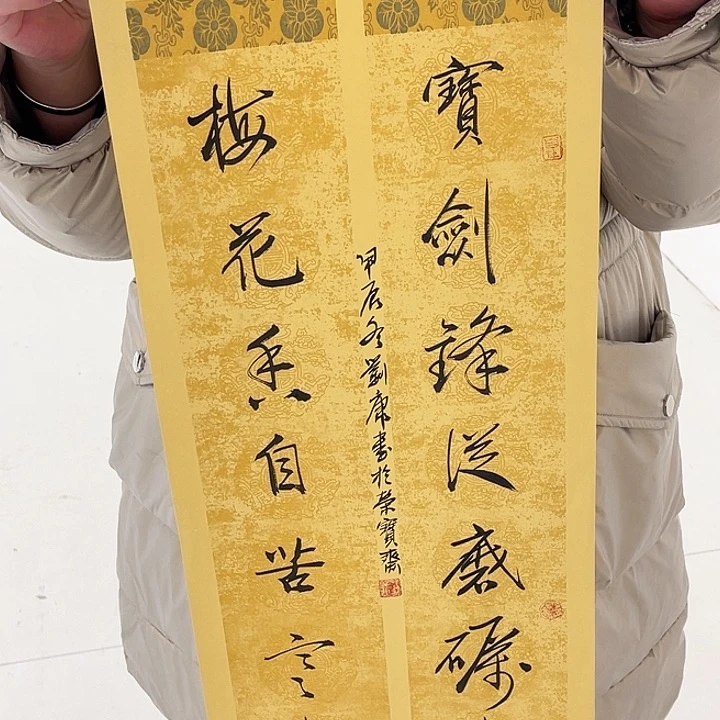 寶劍鋒從磨礪
梅花香自苦寒
甲辰冬劉庸書於榮寶齋